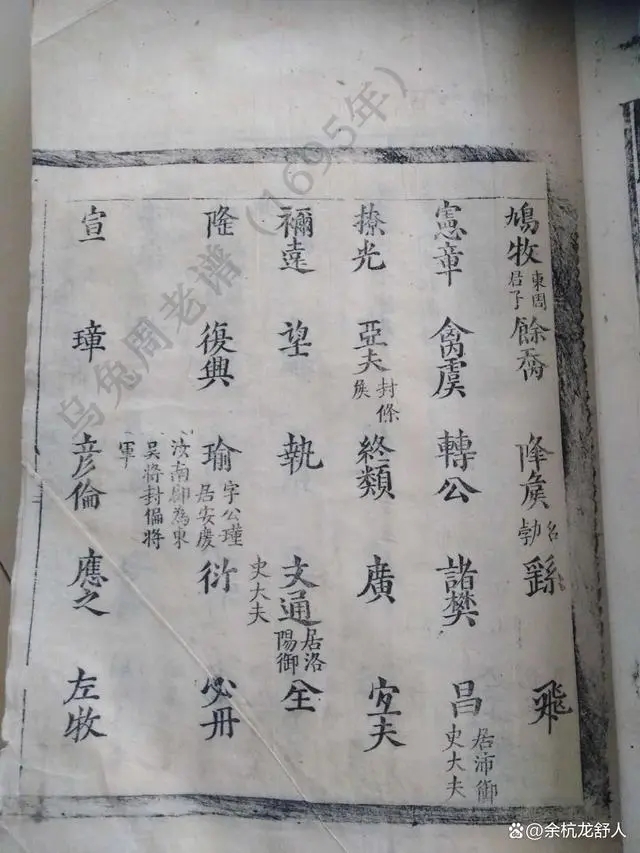 鳩牧 東周君子 餘喬 降矦 名勃 繇 飛
憲章 禽虞 轉公 諸樊 昌 居沛御史大夫
撩光 亞夫 封條矦 終類 廣 宜夫
禰遠 望 執 文通 居洛陽御史大夫 全
隆 復興 瑜 字公瑾居安慶汝南鄉為東吳將封偏將軍 衍 必冊
宣 璋 彥倫 應之 左牧
乌兔周老谱（1695年）
@余杭龙舒人